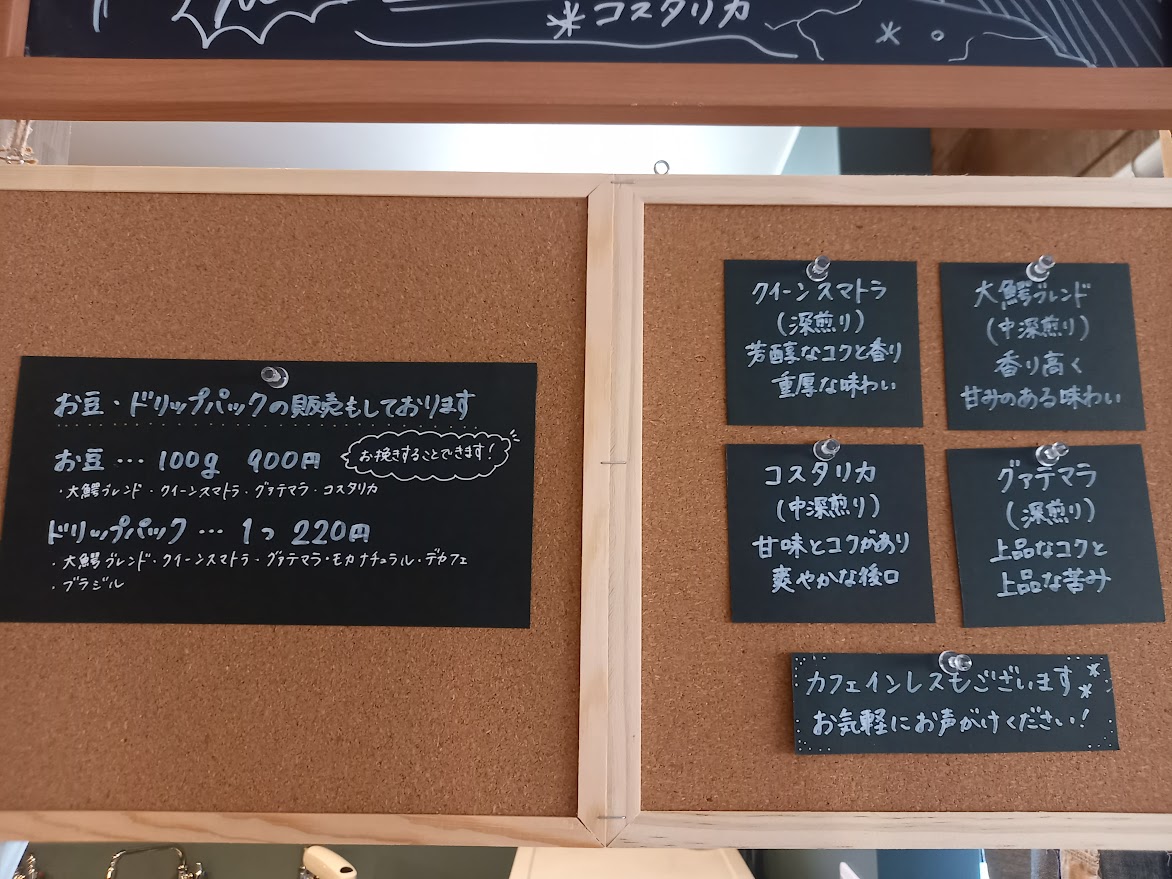 *コスタリカ
お豆・ドリップパックの販売もしております
お豆…100g 900円
お挽きすることできます!
・大鰐ブレンド・クイーンスマトラ・グァテマラ・コスタリカ
ドリップパック…1つ 220円
・大鰐ブレンド・クイーンスマトラ・グァテマラ・モカナチュラル・デカフェ
・ブラジル
クイーンスマトラ
(深煎り)
芳醇なコクと香り
重厚な味わい
大鰐ブレンド
(中深煎り)
香り高く
甘みのある味わい
コスタリカ
(中深煎り)
甘味とコクがあり
爽やかな後口
グァテマラ
(深煎り)
上品なコクと
上品な苦み
カフェインレスもございます
お気軽にお声がけください!